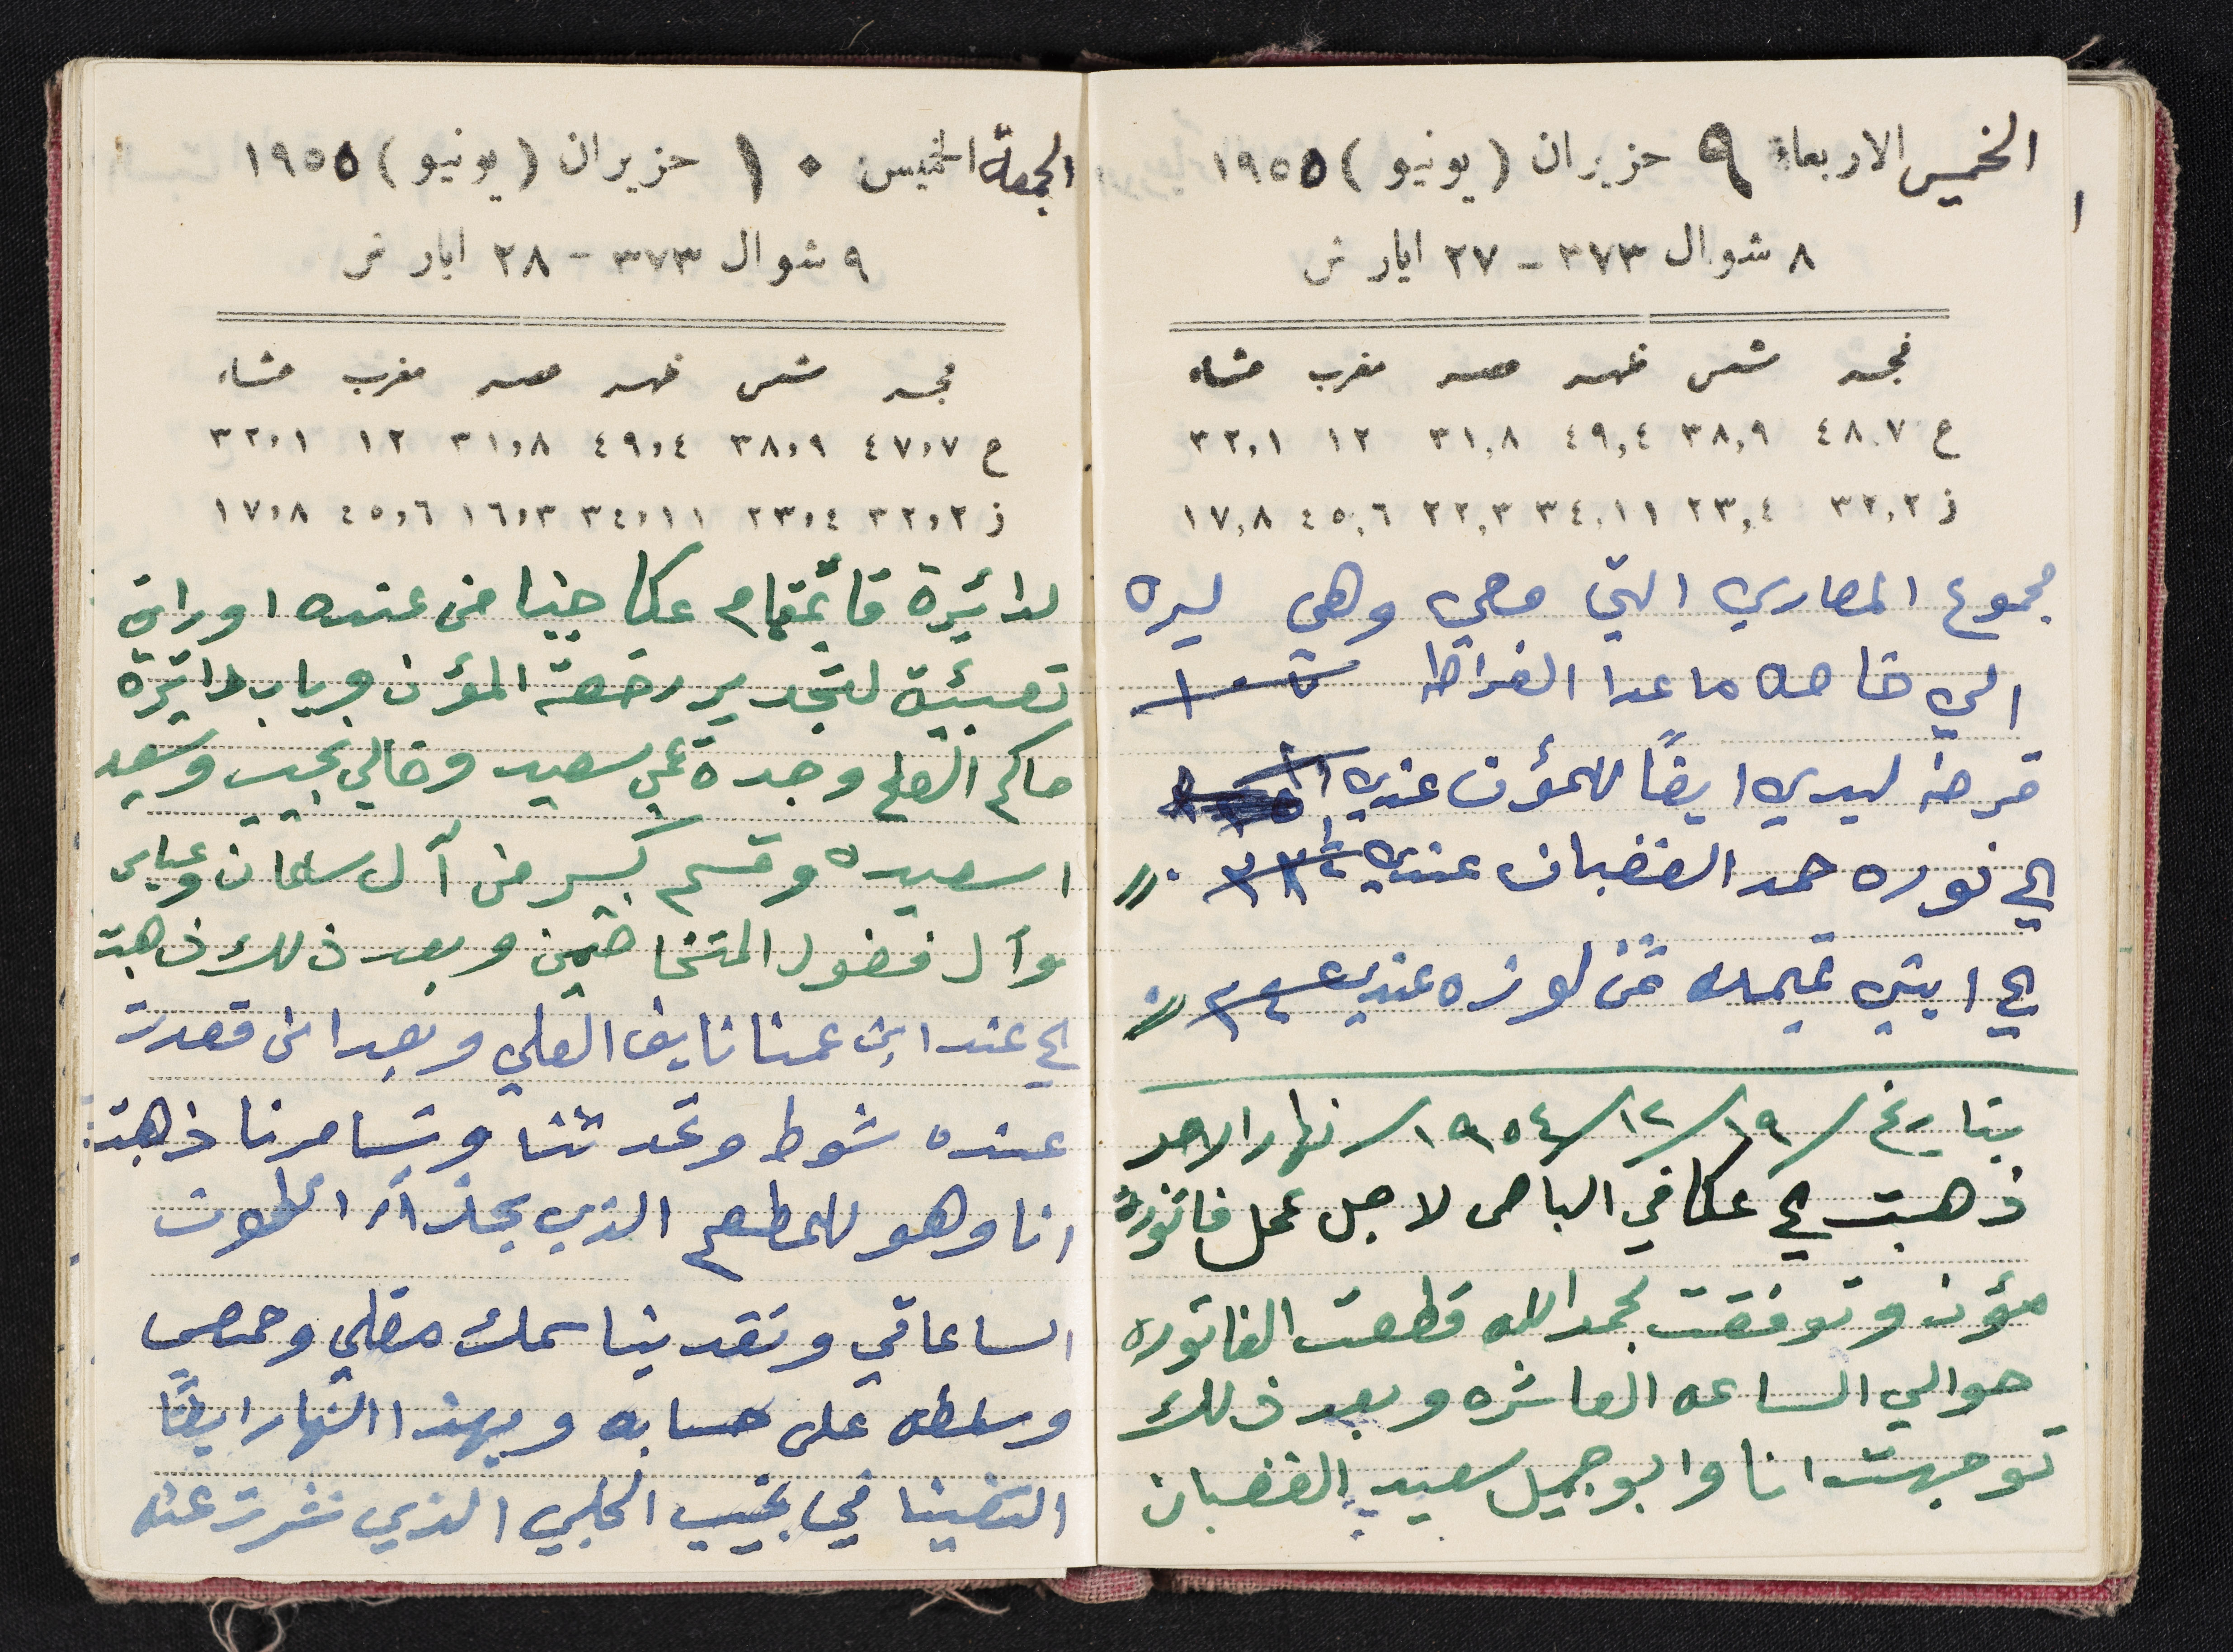 الخميس الاربعاء ٩ حزيران (يونيو) ١٩٥٥
٨ شوال ٣٧٣ - ٢٧ ايار ش
فجر شمس ظهر عصر مغرب عشاء
ع ٤٨،٧ ٣٨،٩ ٤٩،٤ ٣١،٨ ١٢ ٣٢،١
ز ٣٢،٢ ٢٣،٤ ٣٤،١١ ٢٢،٣ ٤٥،٦ ١٧،٨
مجموع المصاري التي معي وهي ليره
الي خاصه ماعدا الفراطه
قرضه ليدي ايضًا للمؤن عندي
الى نوره حمد الغضبان عندي
الى ابني ثمن لوزه عندي
بتاريخ ١٩/١٢/١٩٥٤ نهار الاحد
ذهبت الى عكا في الباص لاجل عمل فاتورة
مؤن وتوفقت بحمد الله قطعت الفاتوره
حوالي الساعه العاشره وبعد ذلك
توجهت انا وابو جميل سعيد الغضبان
الجمعة الخميس ١٠ حزيران (يونيو) ١٩٥٥
٩ شوال ٣٧٣ - ٢٨ ايار ش
فجر شمس ظهر عصر مغرب عشاء
ع ٤٧،٧ ٣٨،٩ ٤٩،٤ ٣١،٨ ١٢ ٣٢،١
ز ٣٢،٢ ٢٣،٤ ٣٤،١١ ١٦،٣ ٤٥،٦ ١٧،٨
لدائرة قائمقام عكا جبنا من عنده اوراق
تعبئية لتجديد رخصة المؤن وبباب دائرة
حاكم الصلح وجدة عمي سعيد وخالي نجيب وسعد
اسعيده وقسم كبير من آل سلمان وعباس
وآل فضول المتخاصمين وبعد ذلك ذهبت
الى عند ابن عمنا نايف العلي وبعد ان قعدت
عنده شوط وتحدثنا وتسامرنا ذهبت
انا وهو للمطعم الذي بجذاء
الساعاتي وتغدينا سمك مقلي وحمص
وسلطه على حسابه وبهذا النهار ايضًا
التقينا في نجيب الحلبي الذي نشرت عنه